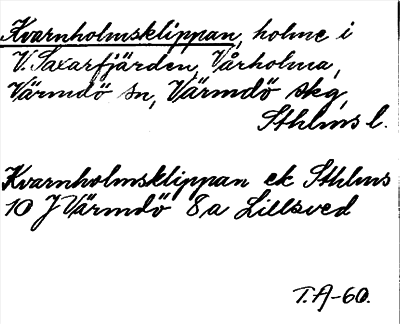 Kvarnholmsklippan, holme i
V. Saxarfjärden, Vårholma,
Värmdö sn, Värmdö skg,
Sthlms l.
Kvarnholmsklippan ek Sthlms
10 J Värmdö 8a Lillsved
T.A-60.